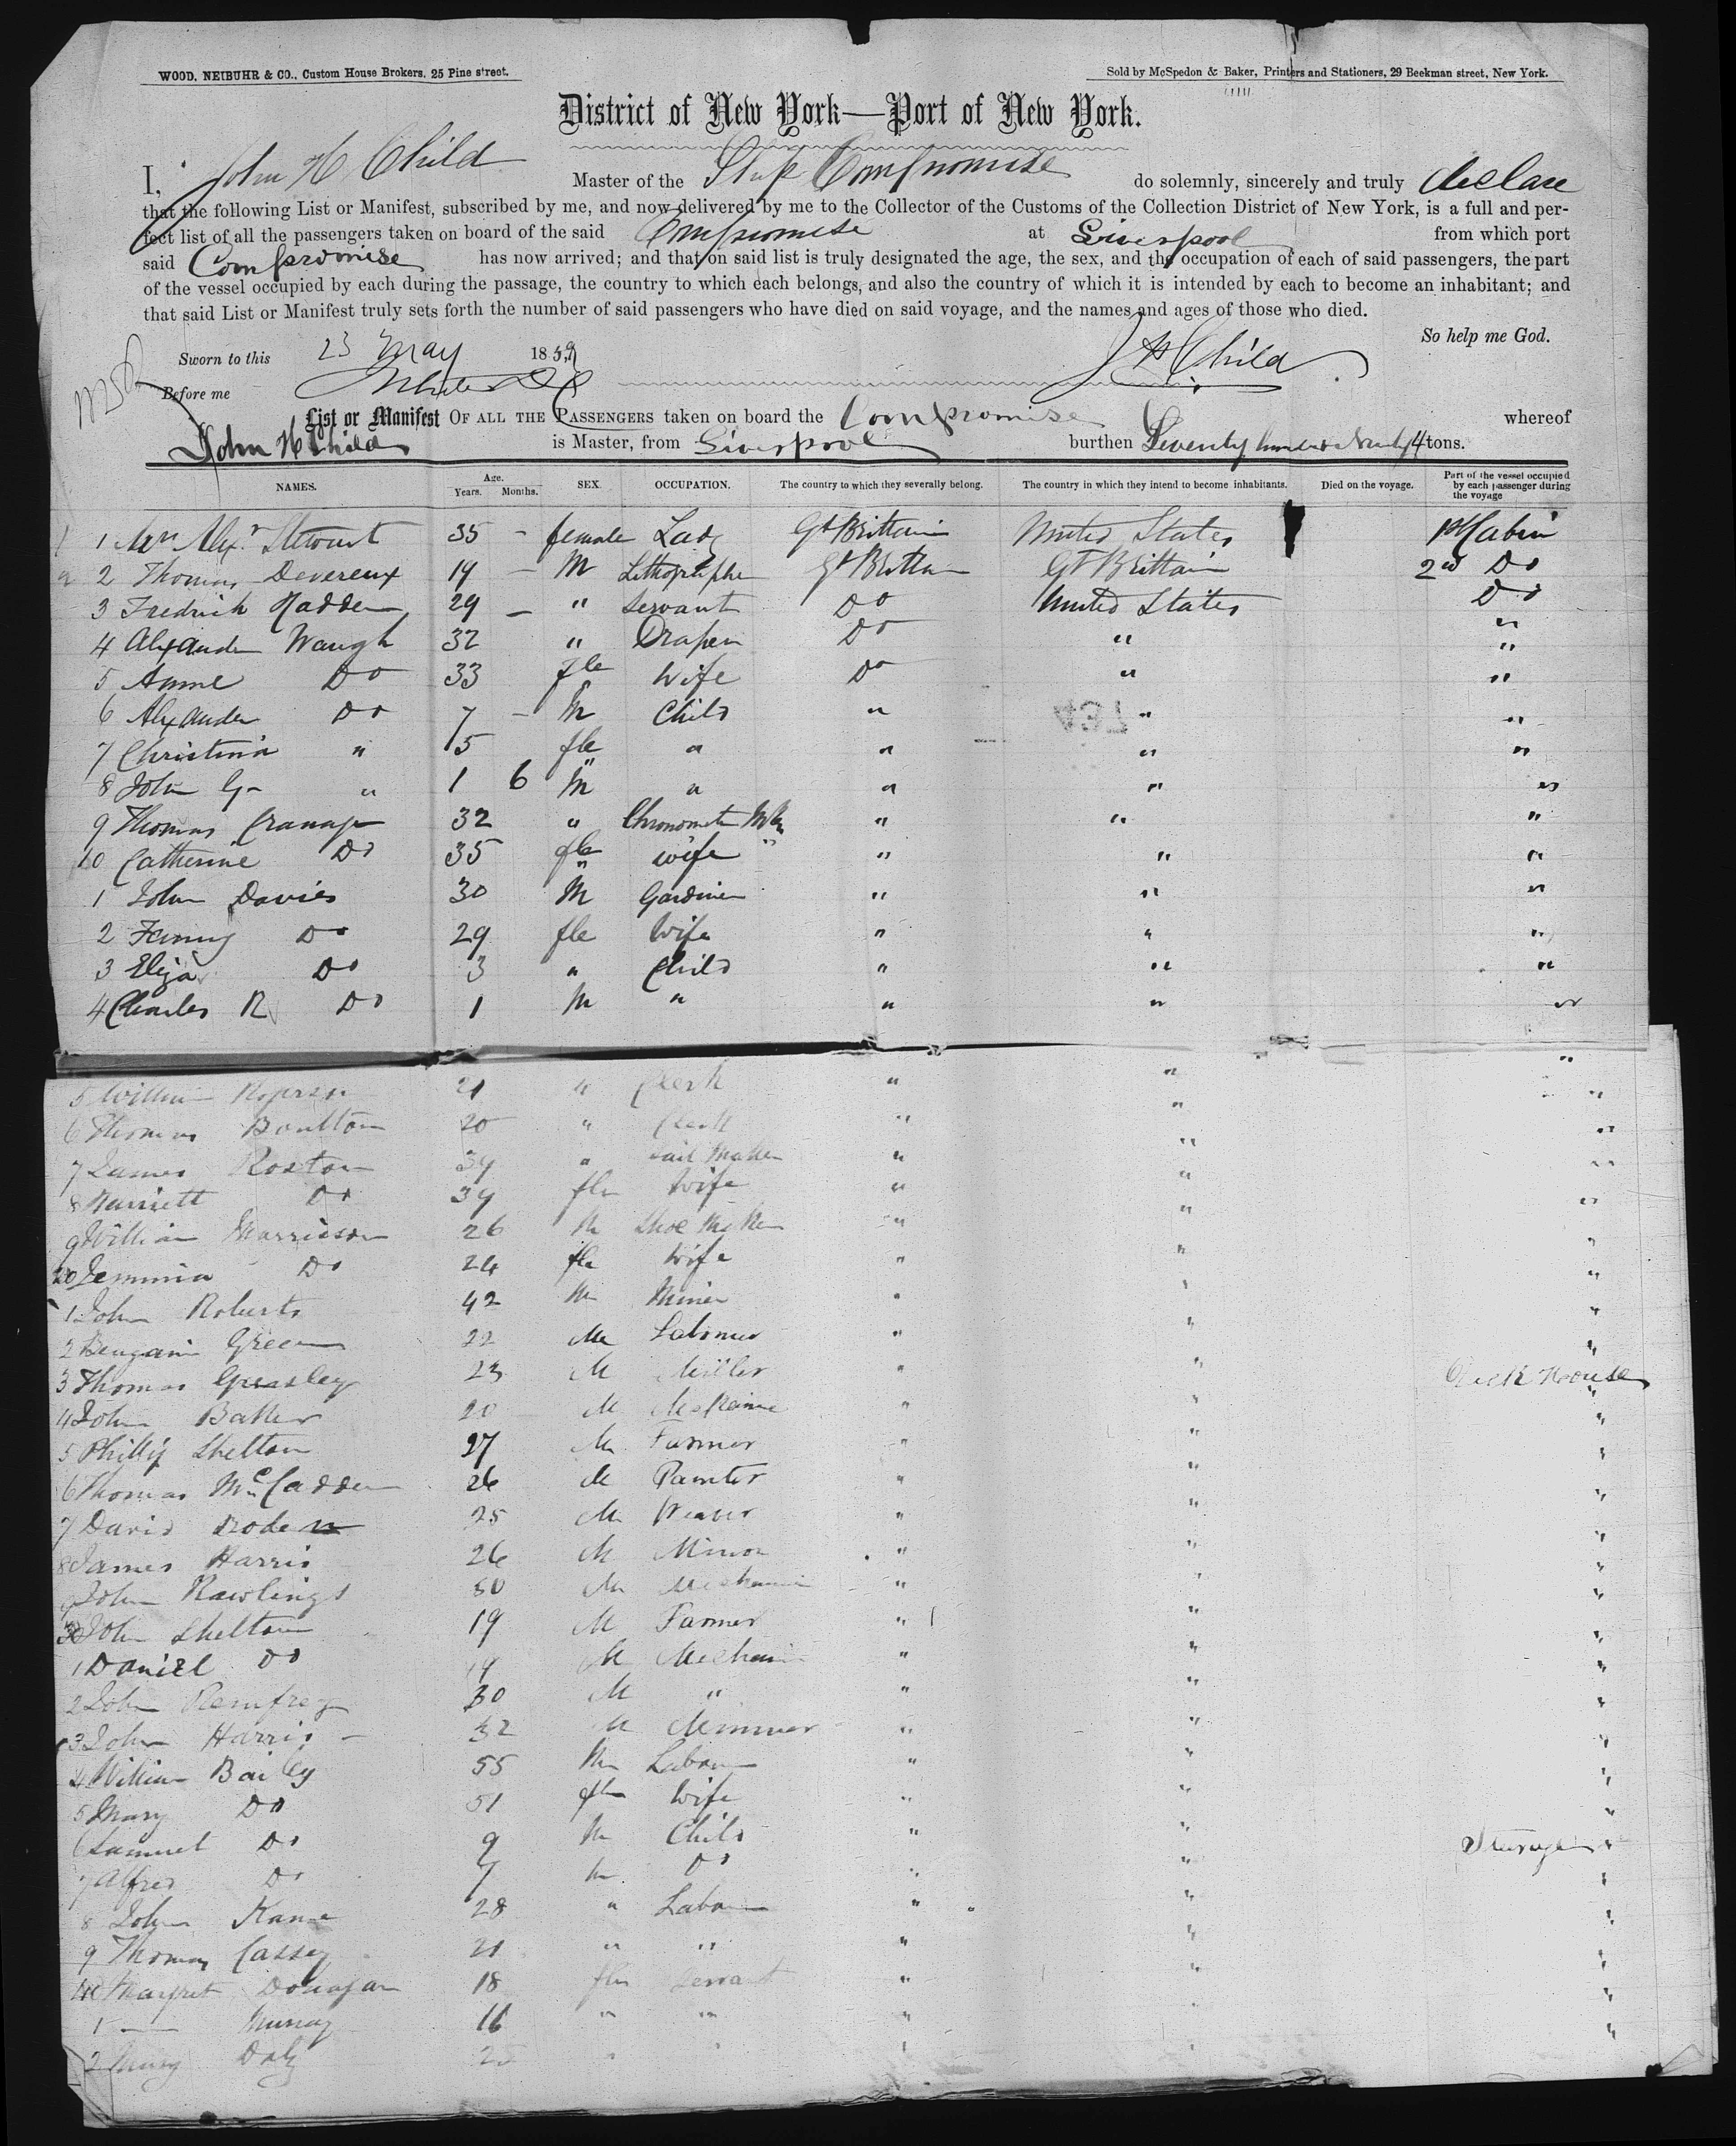 WOOD, NEIBUHR & CO., Custom House Brokers, 25 Pine street.
Sold by McSpedon & Baker, Printers and Stationers, 29 Beekman street, New York.
District of New York—Port of New York.
I, John H Child Master of the Ship Compromise do solemnly, sincerely and truly declare
that the following List or Manifest, subscribed by me, and now delivered by me to the Collector of the Customs of the Collection District of New York, is a full and per-
fect list of all the passengers taken on board of the said Compromise at Liverpool from which port
said Compromise has now arrived; and that on said list is truly designated the age, the sex, and the occupation of each of said passengers, the part
of the vessel occupied by each during the passage, the country to which each belongs, and also the country of which it is intended by each to become an inhabitant; and
that said List or Manifest truly sets forth the number of said passengers who have died on said voyage, and the names and ages of those who died.
So help me God.
Sworn to this 23 May 1859 J H Child
Before me
List or Manifest OF ALL THE PASSENGERS taken on board the Compromise whereof
John H Child is Master, from Liverpool burthen Seventy 4 tons.
NAMES. Age. Years. Months. SEX. OCCUPATION. The country to which they severally belong. The country in which they intend to become inhabitants. Died on the voyage. Part of the vessel occupied by each passenger during the voyage
1 Mrs Alexr Stewart 35 - female Lady Gt Brittain United States 1st Cabin
2 Thomas Devereux 19 - M Gt Brittain Gt Brittain 2nd Do
3 Fredrick Madden 29 - " Servant Do United States Do
4 Alexander Waugh 32 " Draper Do " "
5 Anne Do 33 fle Wife Do " "
6 Alexander Do 7 - M Child " " "
7 Christina " 5 fle " " " "
8 John G- " 1 6 M " " " "
9 Thomas 32 " Chronometer Mkr " " "
10 Catherine Do 35 fle wife " " "
1 John Davies 30 M Gardiner " " "
2 Fanny Do 29 fle Wife " " "
3 Eliza Do 3 " Child " " "
4 Charles R Do 1 M " " " "
5 William 21 " Clerk " " "
6 Thomas Boulton 20 " Clerk " " "
7 James Roston 39 " Sail Maker " " "
8 Harriett Do 39 fle Wife " " "
9 William Harrisson 26 M Shoe Maker " " "
20 Jemmia Do 24 fle Wife " " "
1 John Roberts 42 M Miner " " "
2 Bengamin Green 22 M Labourer " " "
3 Thomas Greasley 23 M Miller " " Deck House
4 John Baker 20 M " " "
5 Phillip Shelton 27 M Farmer " " "
6 Thomas McCadden 26 M Painter " " "
7 David 25 M Weaver " " "
8 James Harris 26 M Minor " " "
9 John Rawlings 50 M Mechanic " " "
30 John Shelton 19 M Farmer " " "
1 Daniel Do 19 M Mechanic " " "
2 John Remfrey 30 M " " " "
3 John Harris - 32 M " " "
4 William Baily 55 M Labour " " "
5 Mary Do 51 fle Wife " " "
6 Samuel Do 9 M Child " " Sterage "
7 Alfred Do 7 M Do " " "
8 John Kane 28 " Labour " " "
9 Thomas Cassey 21 " " " " "
40 Margret Donagan 18 fle Servant " " "
1 — Murray 16 " " " " "
2 Mary Daly " " " " "